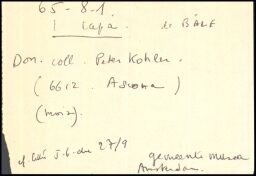 65-8-1.
1 Capa. de BALE
Don. coll. Peter Kohler.
(6612. Ascona)
27/9
gemeente museum
Amsterdam.